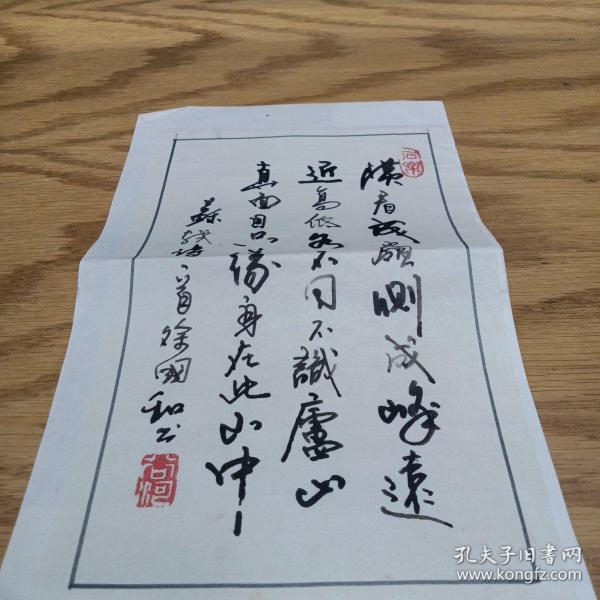 橫看成嶺側成峰遠
近高低各不同不識廬山
真面目只缘身在此山中
蘇軾诗一首徐國和书
孔夫子旧书网
www.kongfz.com